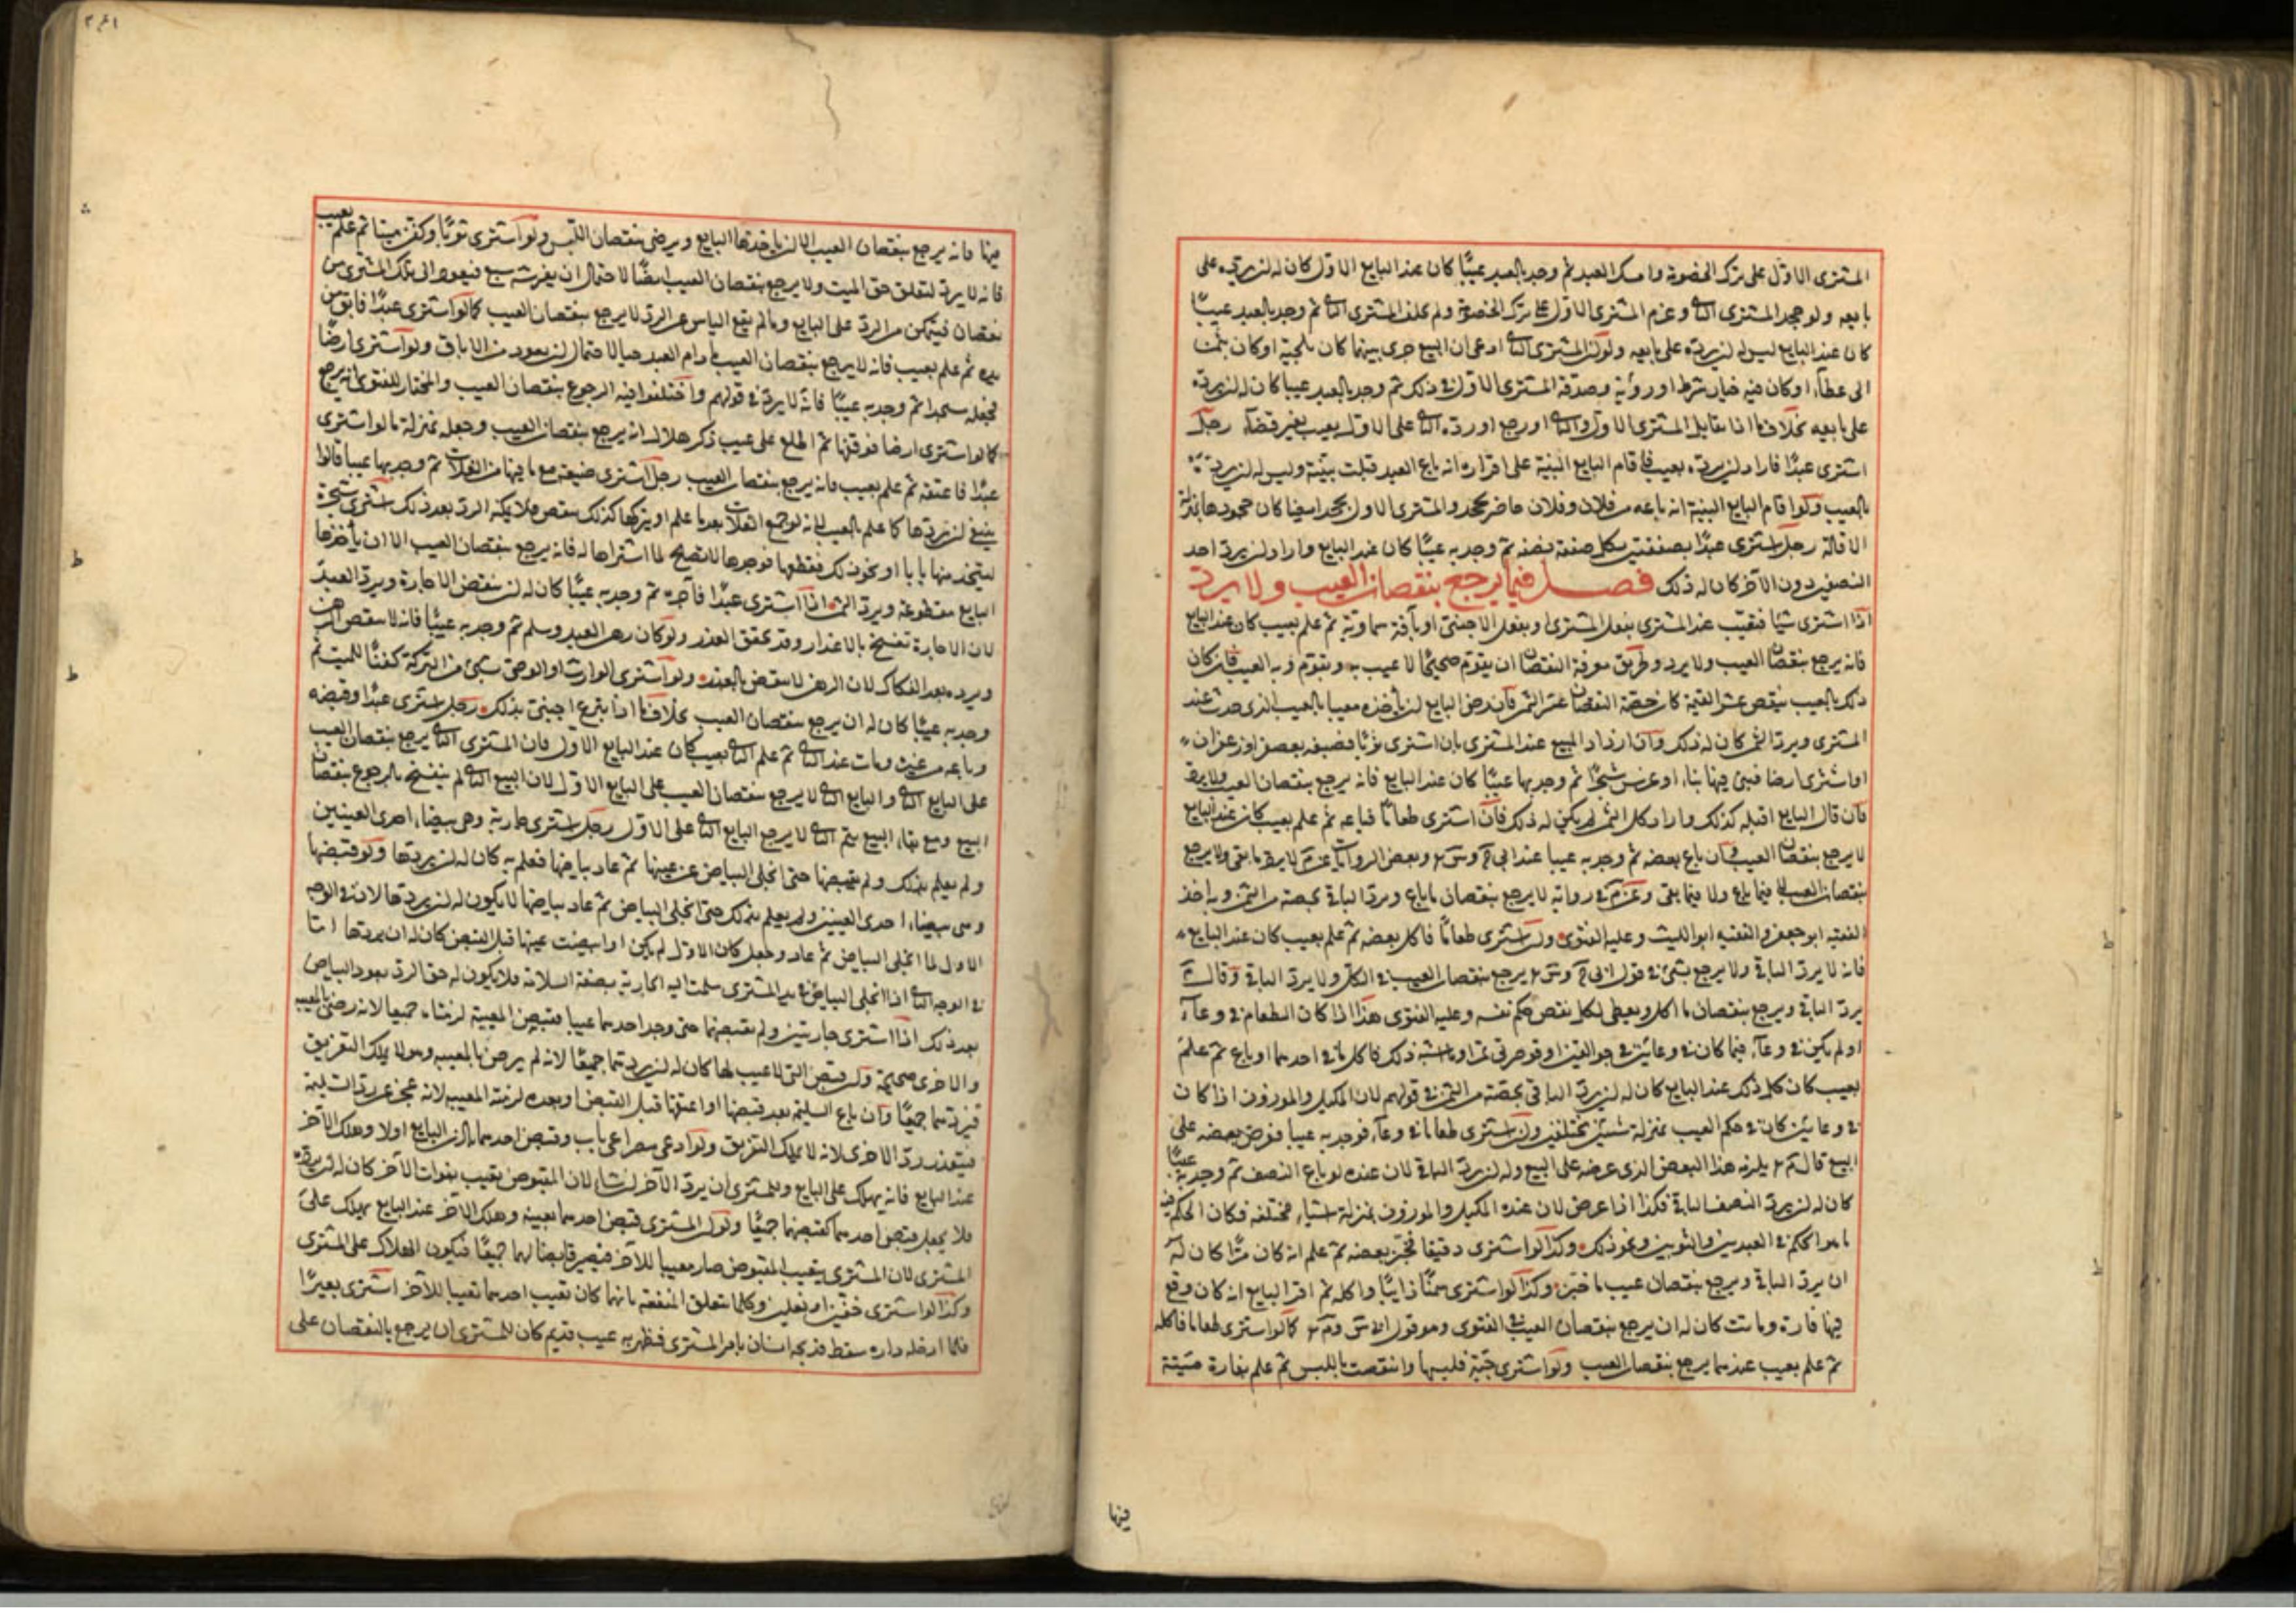 المشتري الاول على ترك الخصومة وامسك العبد ثم وجد بالعبد عيبًا كان عند البايع الاول كان له ان يرده على
بايعه ولو جحد المشتري الثا وعزم المشتري الاول على ترك الخصومة ولم يحلف المشتري الثا ثم وجد بالعبد عيبًا
كان عند البايع ليس له ان يرده على بايعه ولو ان المشتري الثا ادعى ان البيع جرى بينهما كان تلجية او كان بثمن
الى عطآء او كان فيه خيار شرط او رؤية وصدقه المشتري الاول في ذلك ثم وجد بالعبد عيبا كان له ان يرده
على بايعه بخلاف ما اذا تقايل المشتري الاول والثا او رجع او رده الثا على الاول بعيب بغير قضآء رجل
اشترى عبدًا فاراد ان يرده بعيب فاقام البايع البينة على اقراره انه باع العبد قبلت بينته وليس له ان يرده
بالعيب ولو اقام البايع البينة انه باعه من فلان وفلان حاضر يجحد والمشتري الاول يجحد ايضا كان جحودهما بمنزلة
الاقالة رجل اشترى عبدًا بصفقتين بكل صفقة نصفه ثم وجد به عيبًا كان عند البايع واراد ان يرد احد
النصفين دون الآخر كان له ذلك فصل فيما يرجع بنقصان العيب ولا يرد
اذا اشترى شيًا فتعيب عند المشتري بفعل المشتري او بفعل الاجنبي او بآفة سماوية ثم علم بعيب كان عند البايع
فانه يرجع بنقصان العيب ولا يرد وطريق معرفة النقصان ان يقوم صحيحًا لا عيب به ويقوم وبه العيب فان كان
ذلك بالعيب ينقص عشر القيمة كان حصة النقصان عشر الثمن فان رضي البايع ان ياخذه معيبا بالعيب الذي حدث عند
المشتري ويرد الثمن كان له ذلك وان ازداد المبيع عند المشتري بان اشترى ثوبًا فصبغه بعصفر او زعفران
او اشترى ارضا فبنى فيها بناء او غرس شجرًا ثم وجد بها عيبًا كان عند البايع فانه يرجع بنقصان العيب ولا يرد
فان قال البايع اقبله كذلك وارد كل الثمن لم يكن له ذلك فان اشترى طعامًا فباعه ثم علم بعيب كان عند البايع
لا يرجع بنقصان العيب وان باع بعضه ثم وجد به عيبا عند ابي ح وس وبعض الروايات عن م لا يرد ما بقي ولا يرجع
بنقصان العيب لا فيما باع ولا فيما بقي وعن م في رواية لا يرجع بنقصان ما باع ويرد الباقي بحصته من الثمن وبه اخذ
الفقيه ابو جعفر والفقيه ابو الليث وعليه الفتوى وان اشترى طعامًا فاكل بعضه ثم علم بعيب كان عند البايع
فانه لا يرد الباقي ولا يرجع بشئ في قول ابي ح وس يرجع بنقصان العيب في الكل ولا يرد الباقي وقال م
يرد الباقي ويرجع بنقصان ما اكل ويعطى لكل نقص حكم نفسه وعليه الفتوى هذا اذا كان الطعام في وعآء
او لم يكن في وعآء فيما كان في وعائين في جوالقين او قوصرتي تمر او ما اشبه ذلك فاكل ما في احدهما او باع ثم علم
بعيب كان كل ذلك عند البايع كان له ان يرد الباقي بحصته من الثمن في قولهم لان المكيل والموزون اذا كان
في وعائين كان في حكم العيب بمنزلة شيئين مختلفين وان اشترى طعاما في وعآء فوجد به عيبا فعرض بعضه على
البيع قال م يلزمه هذا البعض الذي عرضه على البيع وله ان يرد الباقي لان عنده لو باع النصف ثم وجد به عيبًا
كان له ان يرد النصف الباقي فكذا اذا عرض لان عنده المكيل والموزون بمنزلة اشياء مختلفة فكان الحكم فيه
ما هو الحكم في العبدين والثوبين ونحو ذلك وكذا لو اشترى دقيقا فخبز بعضه ثم علم انه كان مرًّا كان له
ان يرد الباقي ويرجع بنقصان عيب ما خبز وكذا لو اشترى سمنًا ذائبًا واكله ثم اقر البايع انه كان وقع
فيها فارة وماتت كان له ان يرجع بنقصان العيب في الفتوى وهو قول س وم كما لو اشترى طعاما فاكله
ثم علم بعيب عندهما يرجع بنقصان العيب ولو اشترى جبة فلبسها وانتقصت باللبس ثم علم بفارة ميتة
فيها
فيها فانه يرجع بنقصان العيب الا ان ياخذها البايع ويرضى بنقصان اللبس ولو اشترى ثوبًا وكفن ميتا ثم علم بعيب
فانه لا يرد لتعلق حق الميت ولا يرجع بنقصان العيب ايضًا لاحتمال ان يفترسه سبع فيعود الى ملك المشتري من
نقصان فيتمكن من الرد على البايع وما لم يقع الياس عن الرد لا يرجع بنقصان العيب كما لو اشترى عبدًا فابق من
يده ثم علم بعيب فانه لا يرجع بنقصان العيب ما دام العبد حيا لاحتمال ان يعود من الاباق ولو اشترى ارضًا
فجعله مسجدا ثم وجد به عيبًا فانه لا يرد في قولهم واختلفوا فيه الرجوع بنقصان العيب والمختار للفتوى انه يرجع
كما لو اشترى ارضا فوقفها ثم اطلع على عيب ذكر هلال انه يرجع بنقصان العيب وجعله بمنزلة ما لو اشترى
عبدًا فاعتقه ثم علم بعيب فانه يرجع بنقصان العيب رجل اشترى ضيعة مع ما فيها من الغلات ثم وجد بها عيبا قالوا
ينبغي ان يردها كما علم بالعيب لانه لو جمع الغلات بعد ما علم او يتركها كذلك ينقص فلا يمكنه الرد بعد ذلك اشترى شجرة
ليتخذ منها بابا او نحو ذلك فقطعها فوجدها لا تصلح لما اشتراها له فانه يرجع بنقصان العيب الا ان يأخذها
البايع مقطوعة ويرد الثمن اذا اشترى عبدًا فآجره ثم وجد به عيبًا كان له ان ينقض الاجارة ويرد العبد
لان الاجارة تفسخ بالاعذار وقد تحقق العذر ولو كان رهن العبد وسلم ثم وجد به عيبًا فانه لا ينقض الرهن
ويرده بعد الفكاك لان الرهن لا ينقض بالعذر ولو اشترى الوارث او الوصي بشئ من التركة كفنًا للميت ثم
وجد به عيبًا كان له ان يرجع بنقصان العيب بخلاف ما اذا تبرع اجنبي بذلك رجل اشترى عبدًا وقبضه
وباعه من غيره ومات عند الثا ثم علم الثا بعيب كان عند البايع الاول فان المشتري الثا يرجع بنقصان العيب
على البايع الثا والبايع الثا لا يرجع بنقصان العيب على البايع الاول لان البيع الثا لم ينفسخ بالرجوع بنقصان
البيع ومع بقاء البيع الثا لا يرجع البايع الثا على الاول رجل اشترى جارية وهي بيضاء احدى العينين
ولم يعلم بذلك ولم يقبضها حتى انجلى البياض عن عينها ثم عاد بياضها فعلم به كان له ان يردها ولو قبضها
وهي بيضاء احدى العينين ولم يعلم بذلك حتى انجلى البياض ثم عاد بياضها لا يكون له ان يردها لان في الوجه
الاول لما انجلى البياض ثم عاد وجعل كان الاول لم يكن او ابيضت عينها قبل القبض كان له ان يردها اما
في الوجه الثا اذا انجلى البياض في يد المشتري سلمت اليه الجارية بصفة السلامة فلا يكون له حق الرد بعود البياض
بعد ذلك اذا اشترى جاريتين ولم يقبضهما حتى وجد احدهما عيبا فقبض المعيبة لزمتاه جميعا لانه رضي بالعيب
والاخرى صحيحة ولو قبض التي لا عيب لها كان له ان يردهما جميعًا لانه لم يرض بالمعيبه وهو لا يملك التفريق
فيردهما جميعًا وان باع السليمة بعد قبضها او اعتقها قبل القبض او بعده لزمته المعيبه لانه عجز عن رد السليمة
فيتعذر رد الاخرى لانه لا يملك التفريق ولو ادعى مصراعي باب وقبض احدهما باذن البايع اولا وهلك الآخر
عند البايع فانه يهلك على البايع وللمشتري ان يرد الآخر ان شاء لان المقبوض تعيب بفوات الآخر كان له ان يرده
فلا يجعل قبض احدهما كقبضهما جميعًا ولو ان المشتري قبض احدهما بعينه وهلك الآخر عند البايع يهلك على
المشتري لان المشتري بتعيب المقبوض صار معيبا للآخر فيصير قابضا لهما جميعًا فيكون الهلاك على المشتري
وكذا لو اشترى خفين او نعلين وكلما يتعلق المنفعة بانهما كان تعيب احدهما تعيبا للآخر اشترى بعيرًا
فلما ادخله داره سقط فذبحه انسان بامر المشتري فظهر به عيب قديم كان للمشتري ان يرجع بالنقصان على